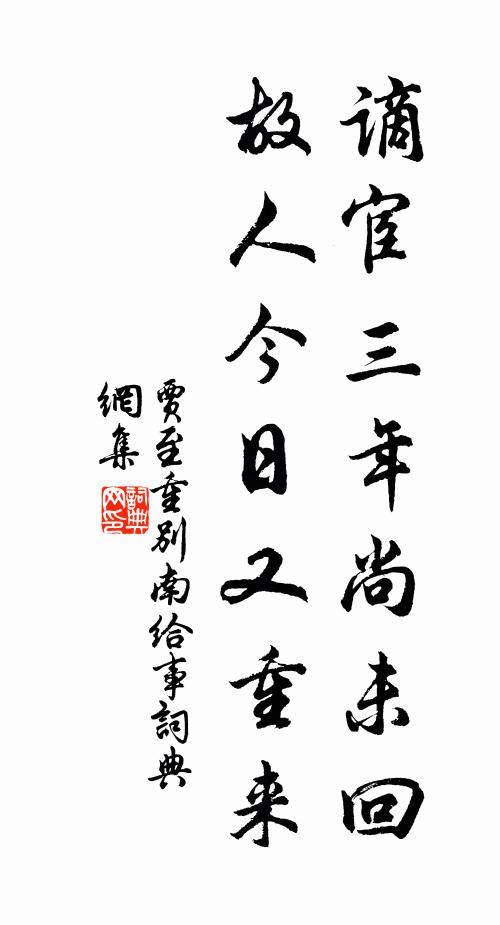 謫宦三年尚未回
故人今日又重来
賈至重別南給事詞典
網集
詞典
网印